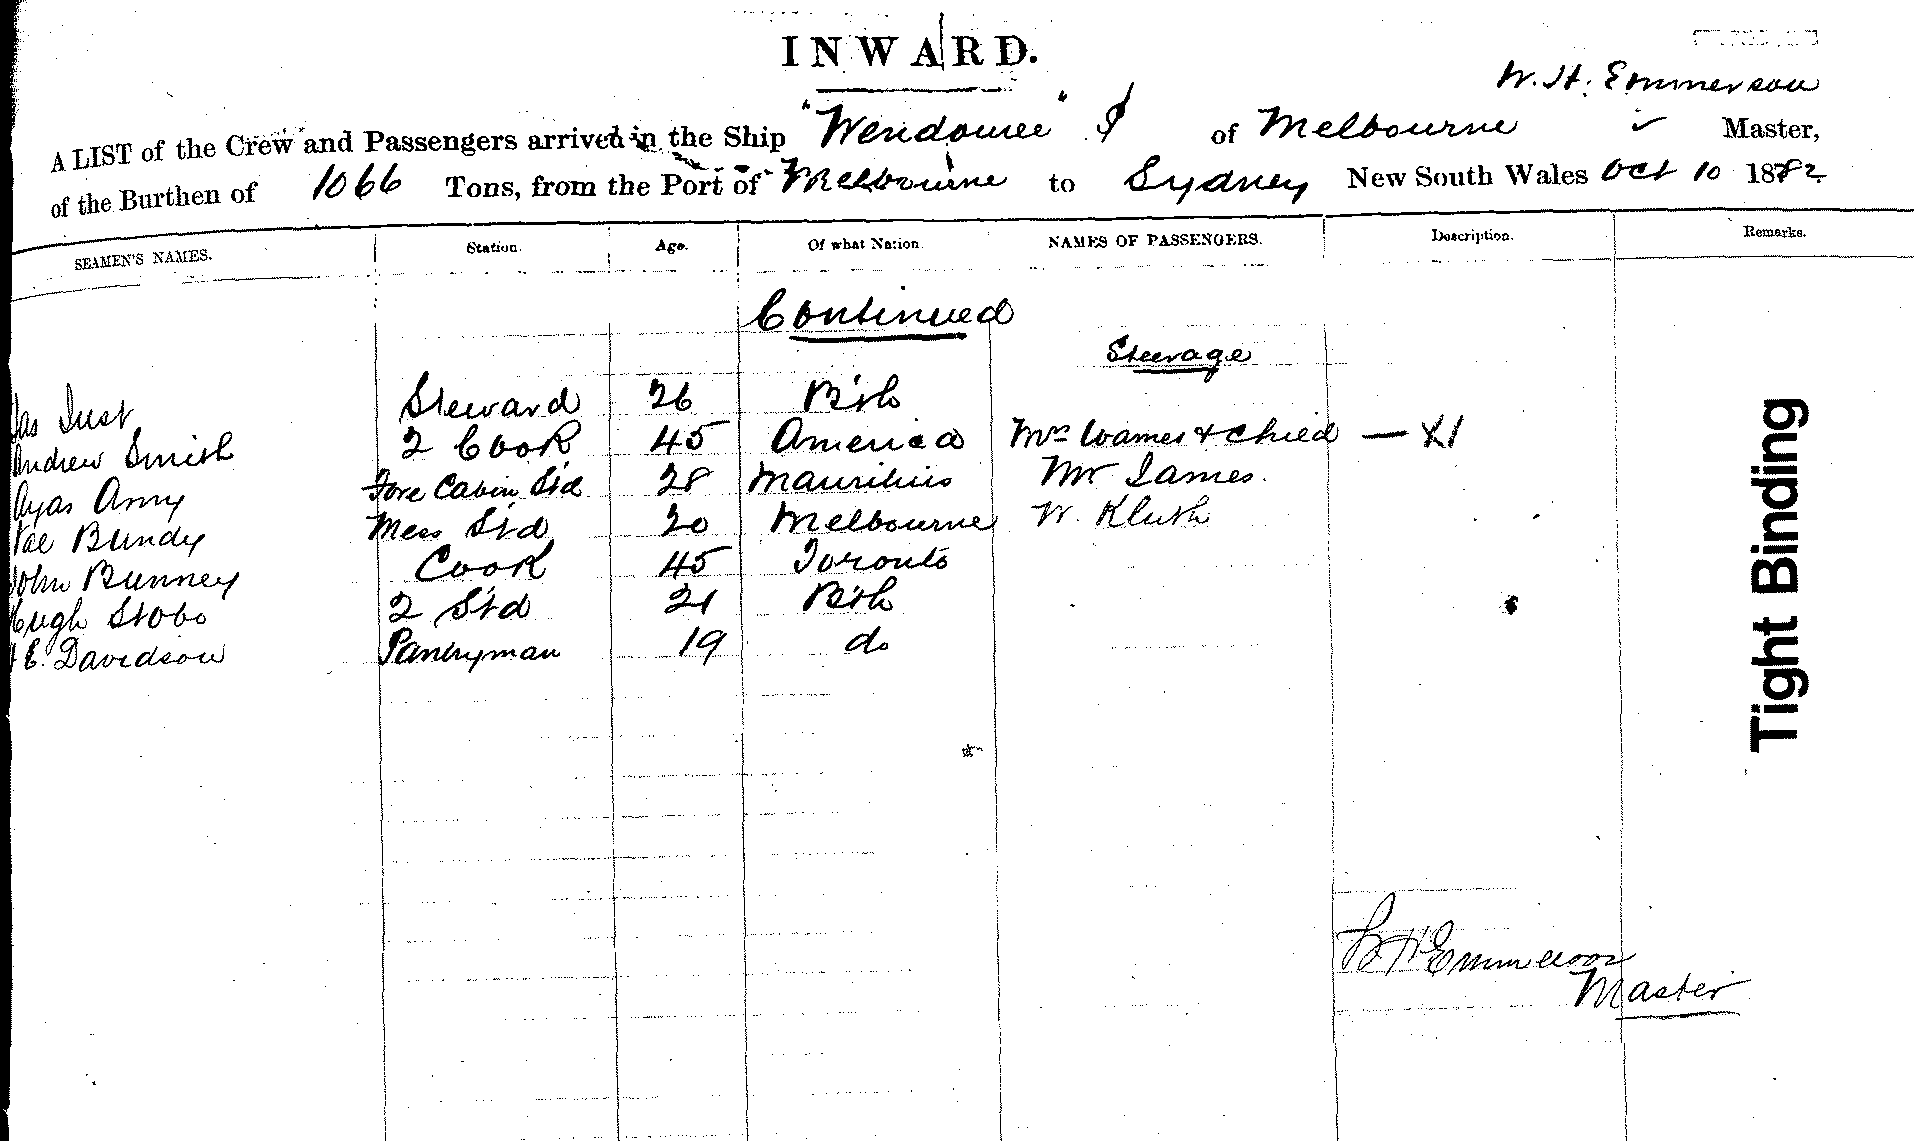 INWARD.
W. H. Emmerson
A LIST of the Crew and Passengers arrived in the Ship "Wendouree" of Melbourne Master,
of the Burthen of 1066 Tons, from the Port of Melbourne to Sydney New South Wales Oct 10 1882
SEAMEN'S NAMES. Station. Age. Of what Nation. NAMES OF PASSENGERS. Description. Remarks.
Continued
Steerage
Jas Just Steward 26 B'ish
Andrew Smith 2 Cook 45 America Mrs & Child — X1
Fore Cabin Std 28 Mauritius Mr James.
Bundy Mess Std 20 Melbourne W.
John Bunney Cook 45 Toronto
Hugh Stobo 2 Std 21 B'ish
E. Davidson Pantryman 19 do
W H Emmerson
Master
Tight Binding